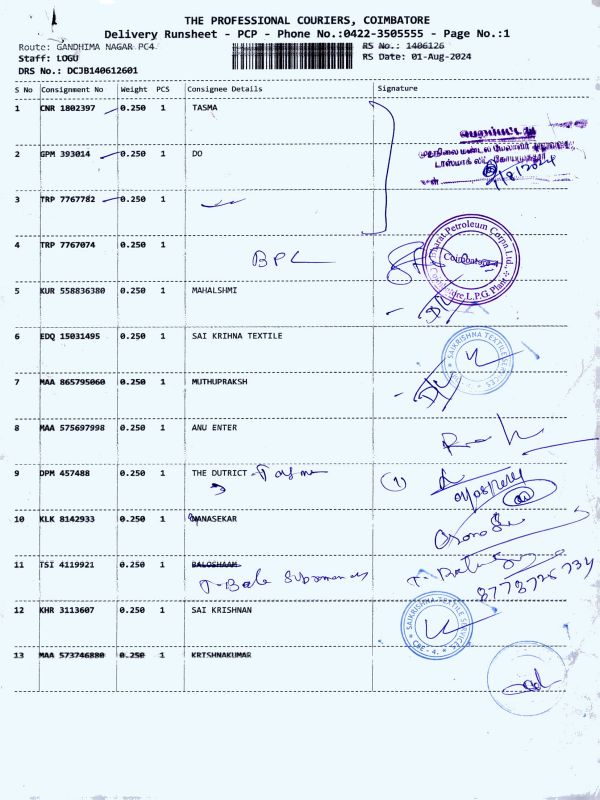 THE PROFESSIONAL COURIERS, COIMBATORE
Delivery Runsheet - PCP - Phone No.:0422-3505555 - Page No.:1
Route: GANDHIMA NAGAR PC4 RS No.: 1406126
Staff: LOGU RS Date: 01-Aug-2024
DRS No.: DCJB140612601
S No Consignment No Weight PCS Consignee Details Signature
1 CNR 1802397 0.250 1 TASMA
2 GPM 393014 0.250 1 DO
3 TRP 7767782 0.250 1
4 TRP 7767074 0.250 1 BPL
Bharat Petroleum Corpn.Ltd.
Coimbatore L.P.G Plant
5 KUR 558836380 0.250 1 MAHALSHMI
6 EDQ 15031495 0.250 1 SAI KRIHNA TEXTILE
SAIKRISHNA TEXTILE SERVICES
7 MAA 865795060 0.250 1 MUTHUPRAKSH
8 MAA 575697998 0.250 1 ANU ENTER
9 DPM 457488 0.250 1 THE DUTRICT
10 KLK 8142933 0.250 1 NANASEKAR
11 TSI 4119921 0.250 1 BALOSHAAM
T. Bala Subramani
8778725734
12 KHR 3113607 0.250 1 SAI KRISHNAN
SAIKRISHNA TEXTILE SERVICES
CBE - 4.
13 MAA 573746880 0.250 1 KRTSHNAKUMAR